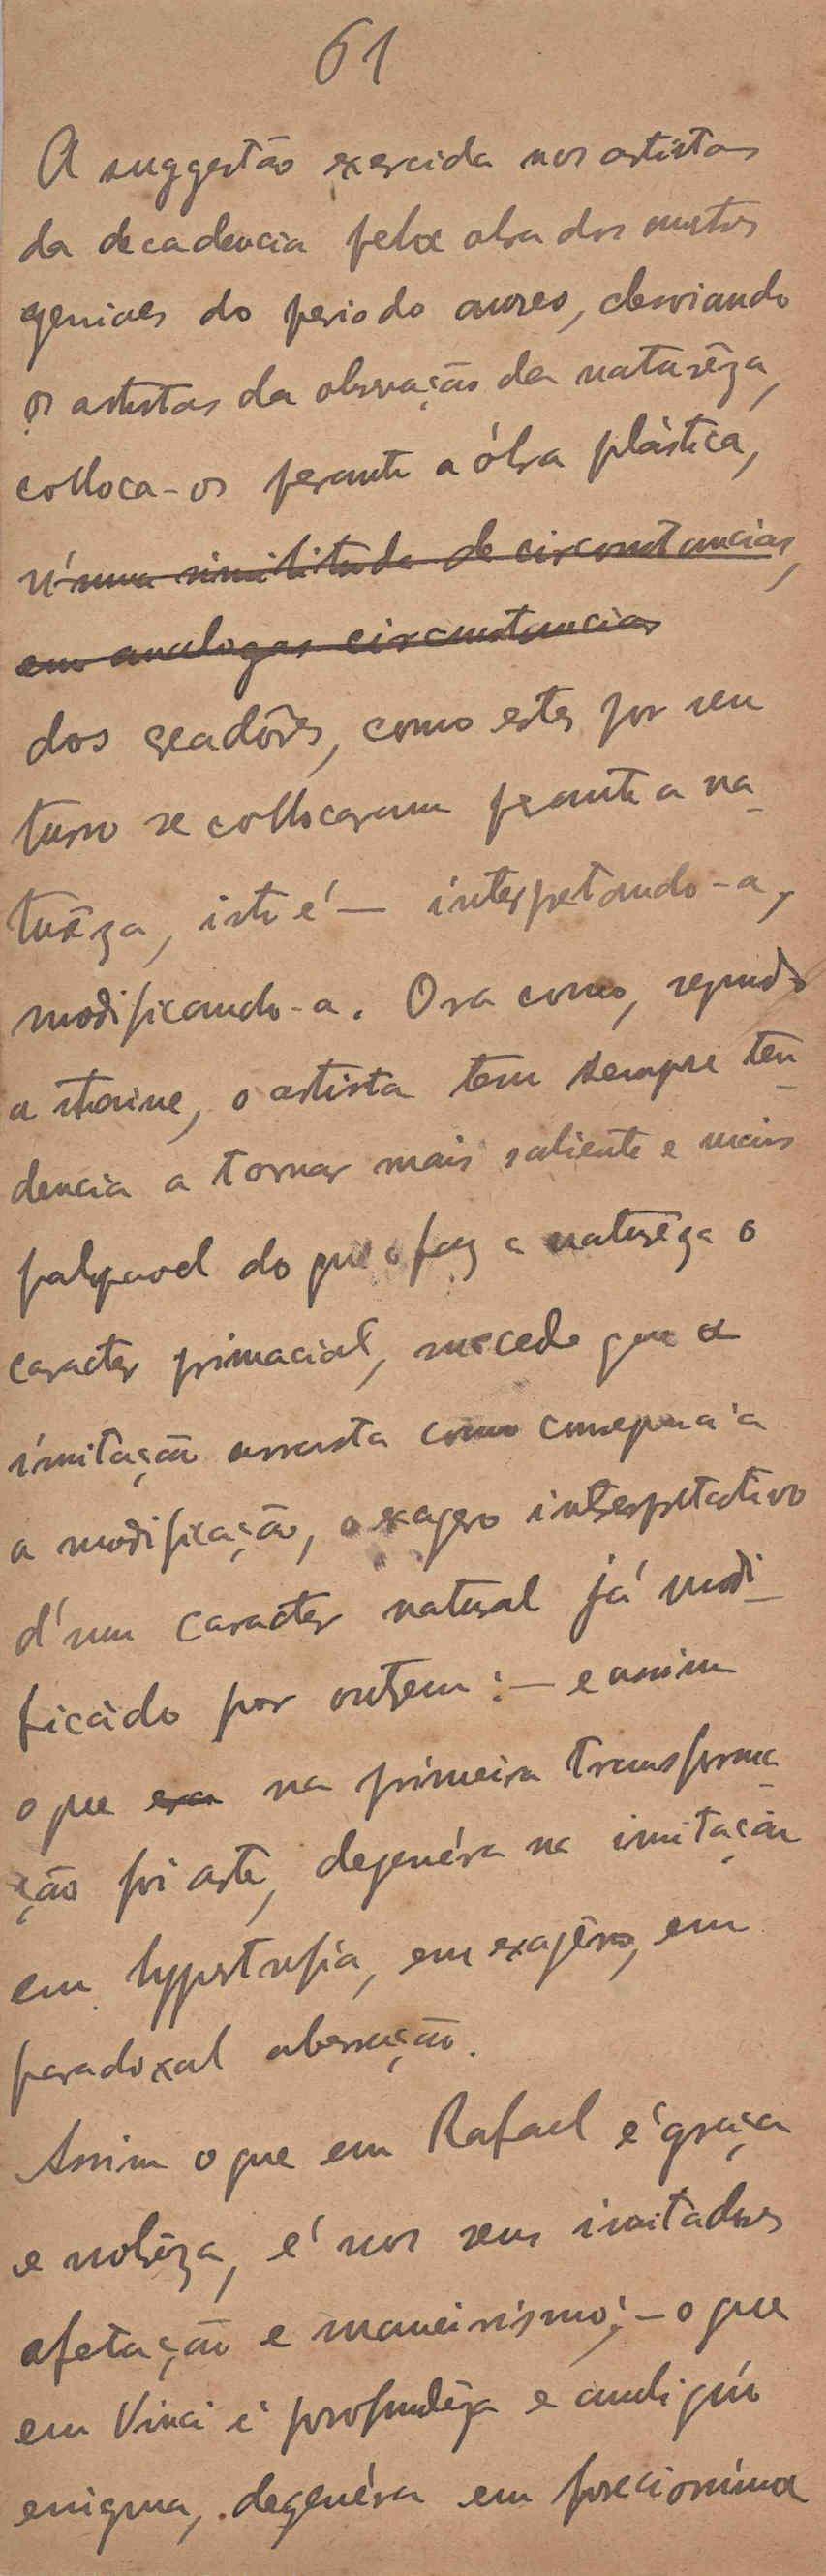 61
A suggestão exercida nos artistas
da decadencia pela obra dos mestres
geniaes do periodo aureo, desviando
os artistas da observação da naturêza,
colloca-os perante a óbra plástica,
n'uma similitude de circonstancias,
em analogas circumstancias
dos creadôres, como estes por seu
turno se collocaram perante a na-
turêza, isto é — interpretando-a,
modificando-a. Ora como, segundo
a Taine, o artista tem sempre ten-
dencia a tornar mais saliente e mais
palpavel do que o faz a naturêza o
caracter primacial, succede que a
imitação arrasta como consequencia
a modificação, o exagero interpretativo
d'um caracter natural já modi-
ficado por outrem: — e assim
o que era na primeira transforma-
ção foi arte, degenéra na imitação
em hypertrofia, em exagêro, em
paradoxal aberração.
Assim o que em Rafael é graça
e nobrêza, é nos seus imitadores
afetação e maneirismo; — o que
em Vinci é profundêza e ambiguo
enigma, degenéra em